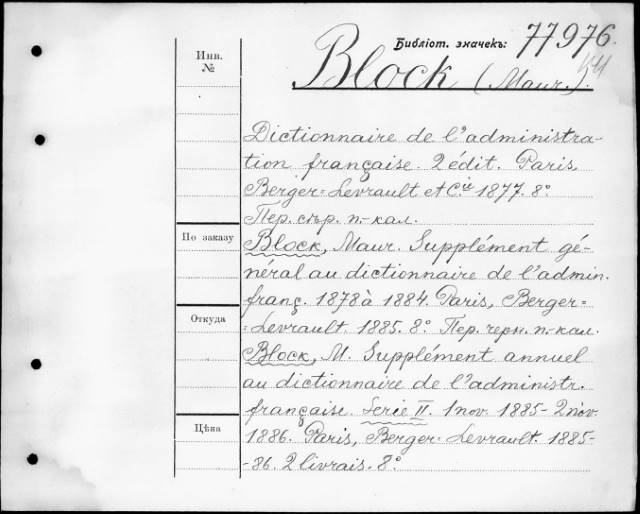 Библіот. значекъ: 77976.
Инв.
№
Block (Maur.).
Dictionnaire de l'administra-
tion française. 2 édit. Paris,
Berger-Levrault et Cie 1877. 8°
Пер. сѣр. п.-кал.
По заказу
Block, Maur. Supplément gé-
néral au dictionnaire de l'admin.
franç. 1878 à 1884. Paris, Berger=
Откуда
=Levrault. 1885. 8°. Пер. черн. п.-кал.
Block, M. Supplément annuel
au dictionnaire de l'administr.
française. Serie II. 1 nov. 1885 - 2 nov.
Цѣна
1886. Paris, Berger-Levrault. 1885-
-86. 2 livrais. 8°